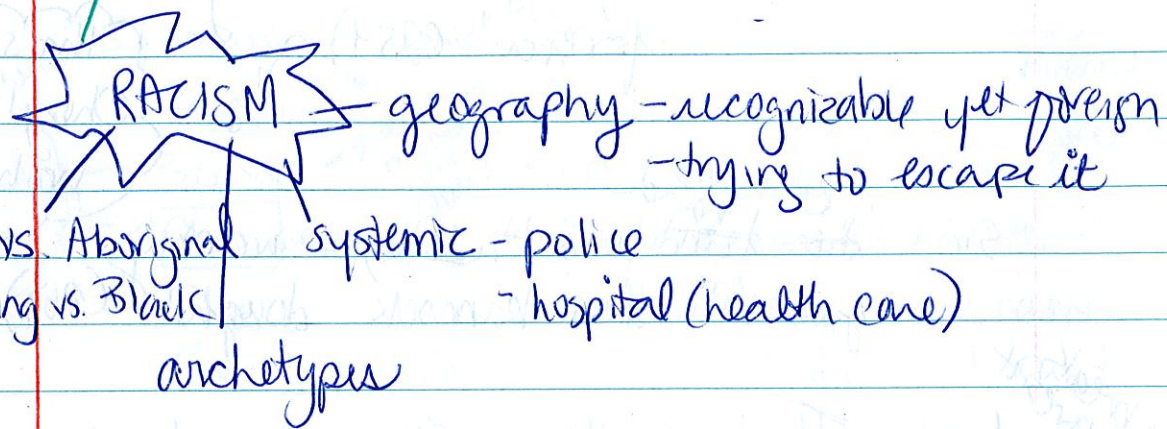 RACISM - geography - recognizable yet foreign
- trying to escape it
vs. Aboriginal systemic - police
ng vs. Black - hospital (health care)
archetypes